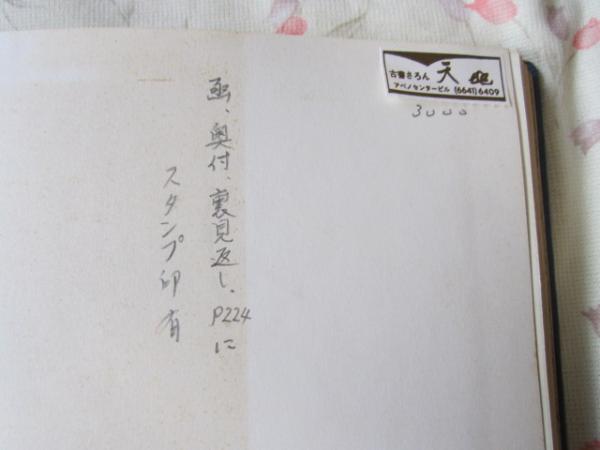 函、奥付、裏見返し、P224に
スタンプ印有
古書さろん 天地
アベノセンタービル (6641)6409
3000